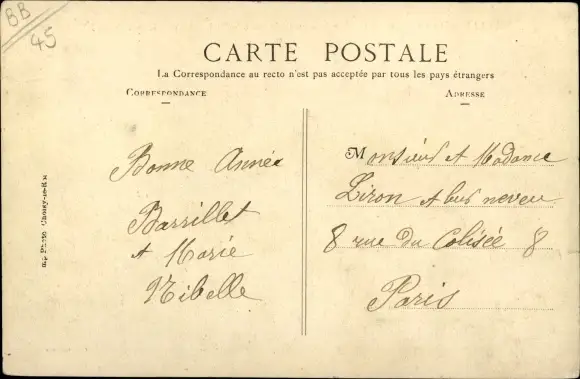 BB
45
CARTE POSTALE
La Correspondance au recto n'est pas acceptée par tous les pays étrangers
CORRESPONDANCE
ADRESSE
Bonne Année
Barrillet
et Marie
Nibelle
Monsieur et Madame
Liron
8 rue du Colisée 8
Paris